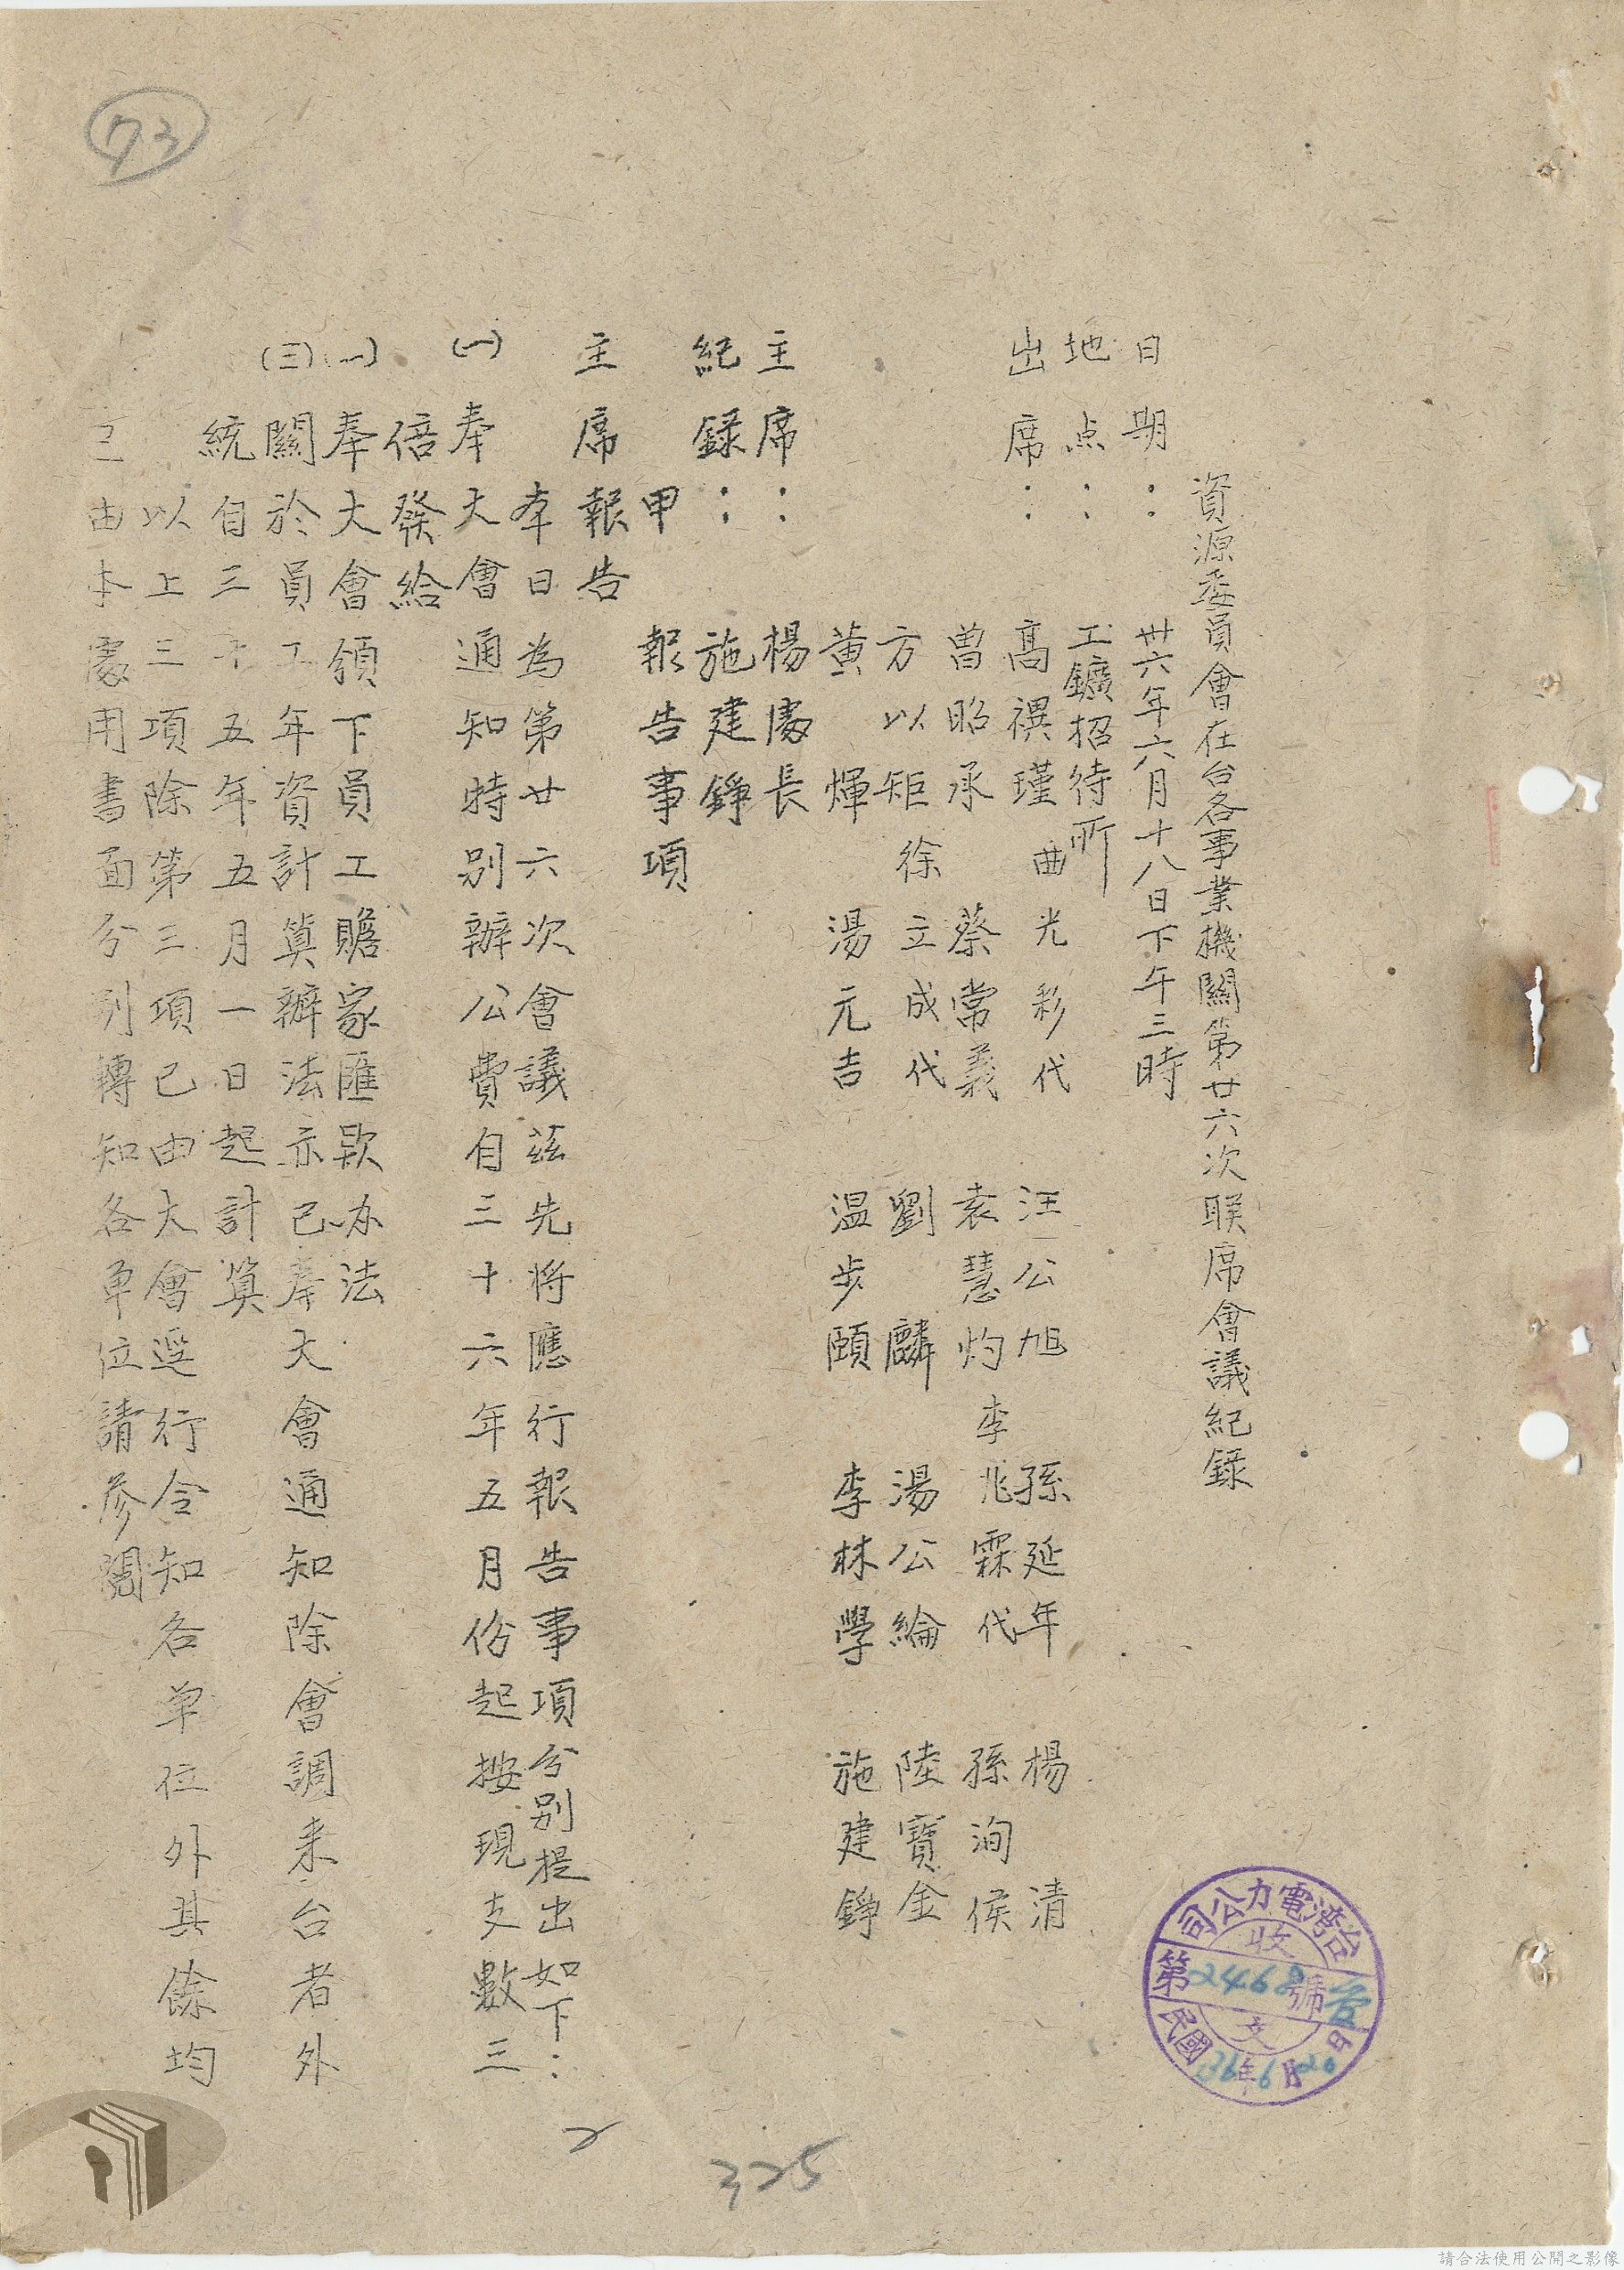 資源委員會在台各事業機關第廿六次联席會議紀錄
日期：卅六年六月十八日下午三時
地点：工鑛招待所
出席：高禩瑾 曲光彩代 汪公旭 孫延年 楊清
曾昭承 蔡常義 袁慧灼 李兆霖代 孫洵侯
方以矩 徐立成代 劉麟 湯公綸 陸寶金
黃煇 湯元吉 温步頤 李林學 施建錚
主席：楊處長
紀録：施建錚
甲 報告事項
主席報告
本日為第廿六次會議茲先将應行報告事項分别提出如下：
(一)奉大會通知特别辦公費自三十六年五月份起按現支數三
倍發給
奉大會領下員工贍家匯款办法
(三)關於員工年資計算辦法亦已奉大會通知除會調来台者外
統自三十五年五月一日起計算
以上三項除第三項已由大會逕行令知各单位外其餘均
已由本處用書面分别轉知各单位請參閱
73
2
325
台湾電力公司
收文
第2468號
民國36年6月20日
請合法使用公開之影像